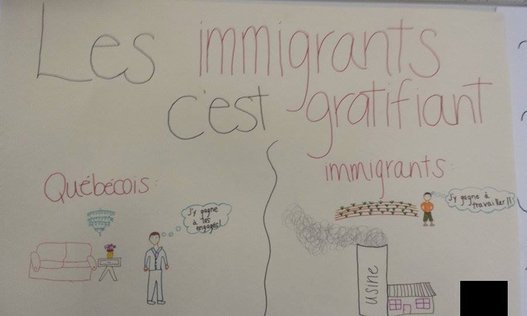 Les immigrants
c'est gratifiant
Québécois:
immigrants:
J'y gagne
à les
engager!
J'y gagne à
travailler!!
usine